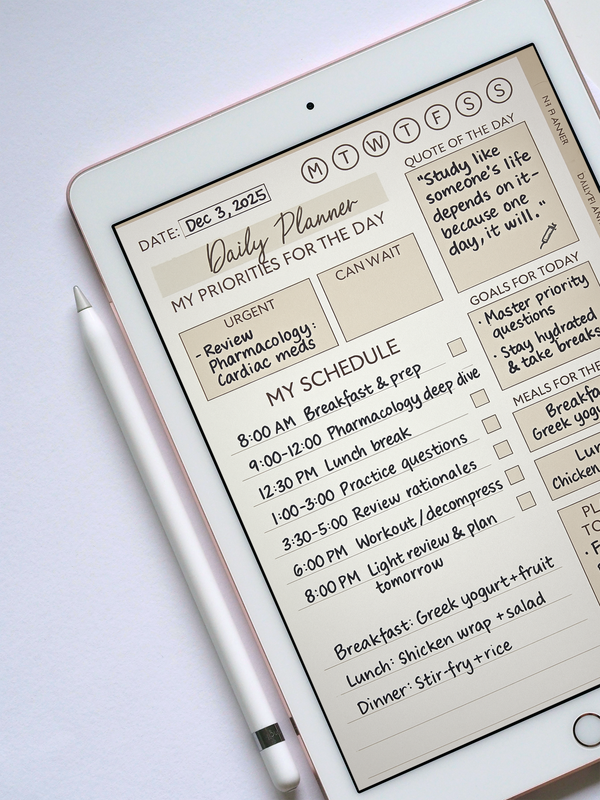 M T W T F S S
DATE: Dec 3, 2025
Daily Planner
MY PRIORITIES FOR THE DAY
URGENT
- Review
Pharmacology:
Cardiac meds
CAN WAIT
MY SCHEDULE
8:00 AM Breakfast & prep
9:00-12:00 Pharmacology deep dive
12:30 PM Lunch break
1:00-3:00 Practice questions
3:30-5:00 Review rationales
6:00 PM Workout/decompress
8:00 PM Light review & plan
tomorrow
Breakfast: Greek yogurt+fruit
Lunch: Shicken wrap +salad
Dinner: Stir-fry+rice
QUOTE OF THE DAY
"Study like
someone's life
depends on it-
because one
day, it will."
GOALS FOR TODAY
· Master priority
questions
· Stay hydrated
& take breaks
MEALS FOR THE
Breakfa
Greek yogu
Lun
Chicken
PL
TO